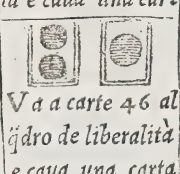 la e caua una cart
Va a carte 46 al
q̃dro de liberalità
e caua una carta